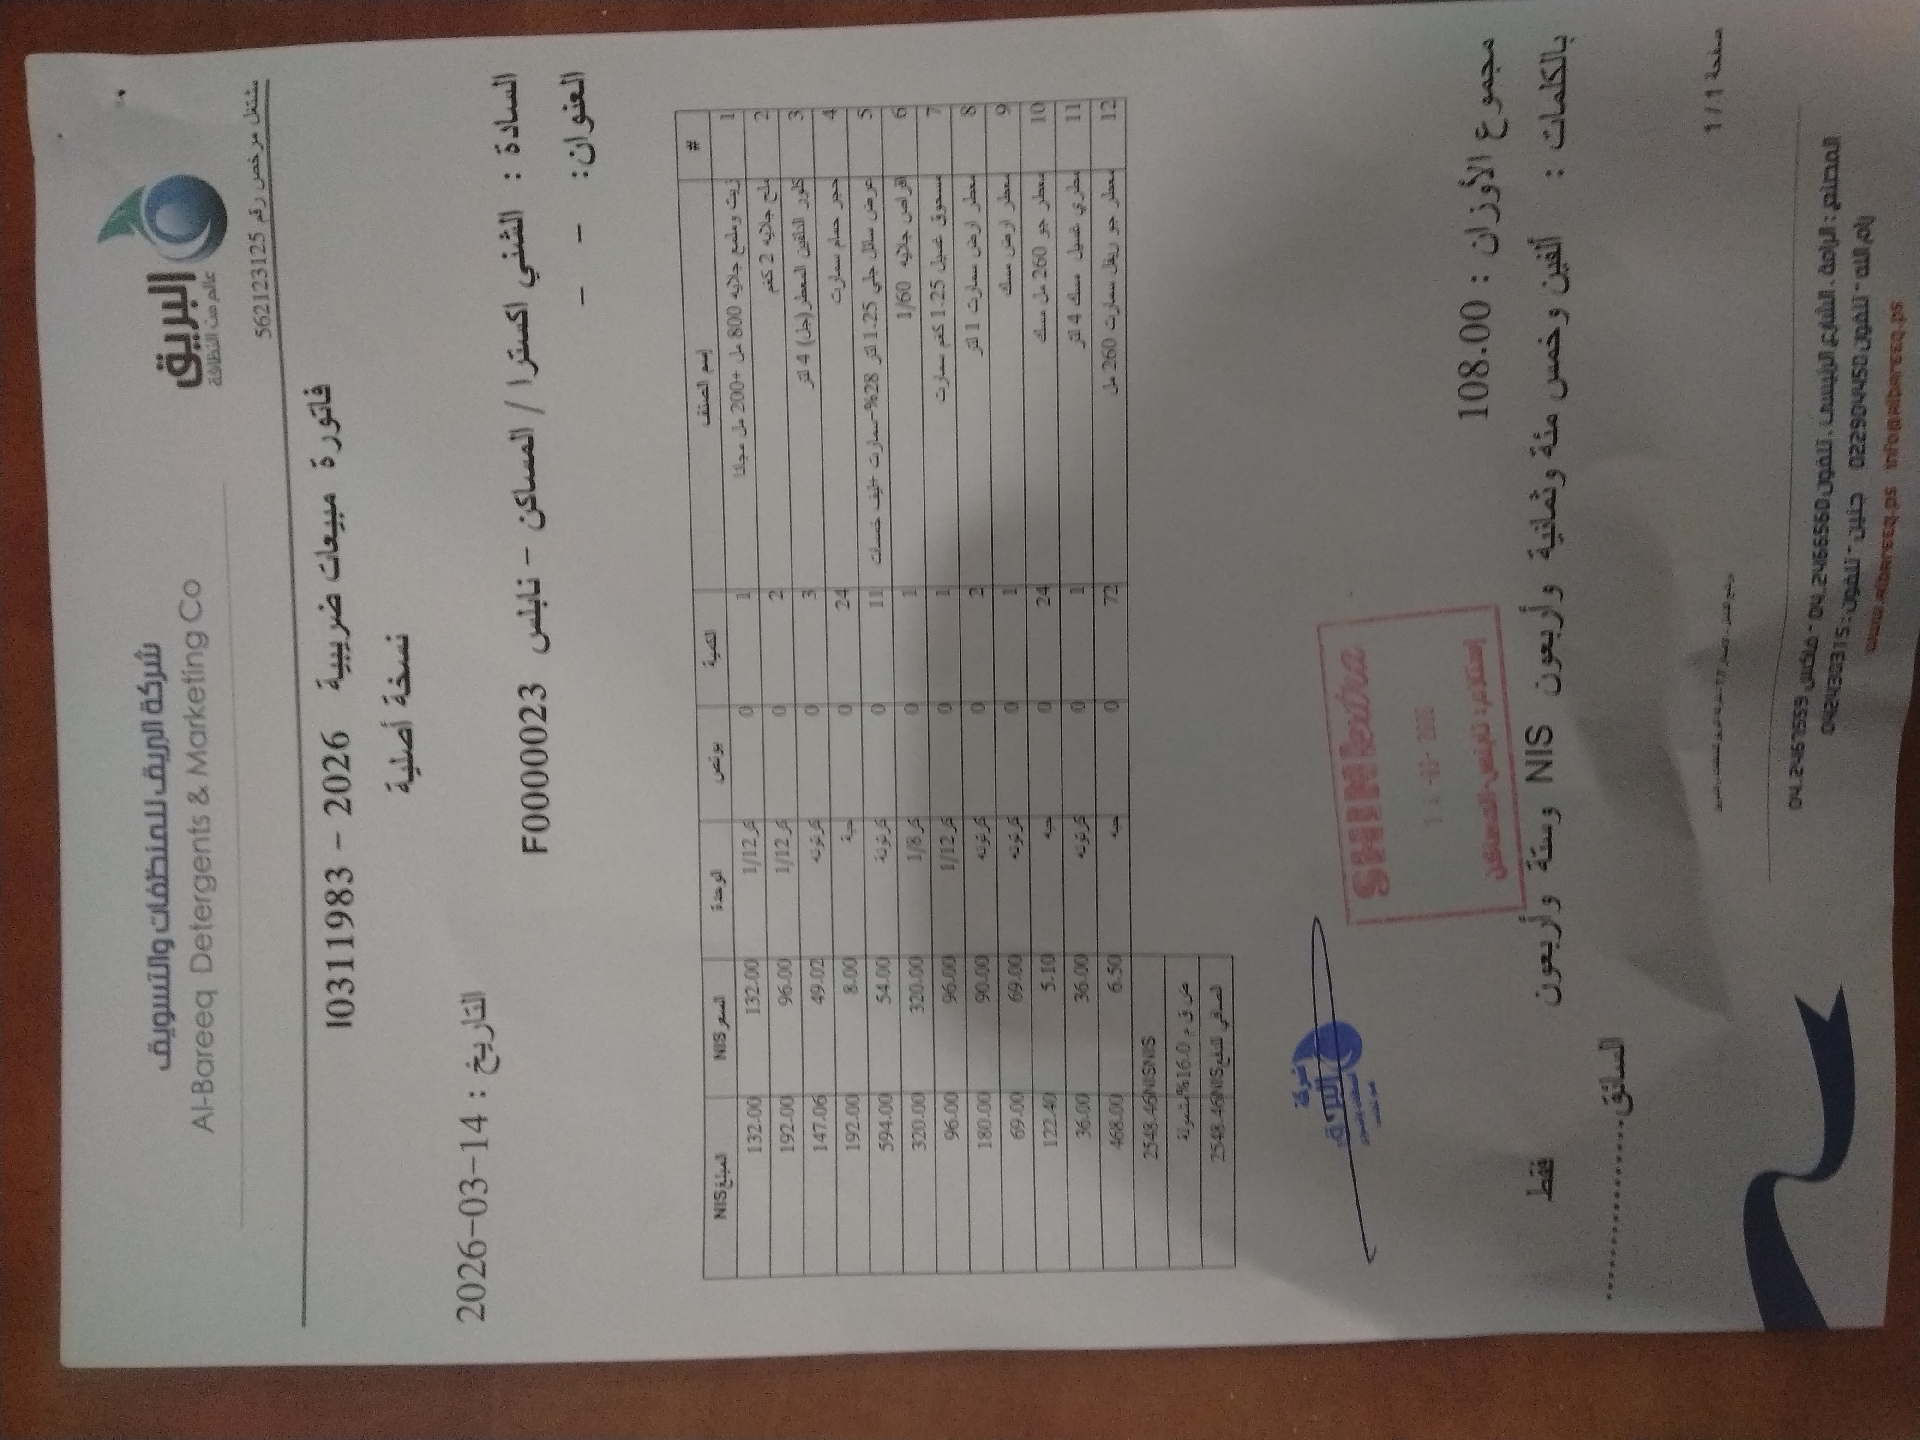 شركة البريق للمنظفات والتسويق
Al-Bareeq Detergents & Marketing Co
البريق
عالم من النظافة
مشتغل مرخص رقم 562123125
فاتورة مبيعات ضريبية I0311983 - 2026
نسخة أصلية
التاريخ : 2026-03-14
السادة : الشني اكسترا / المساكن - نابلس F0000023
العنوان: - -
# إسم الصنف الكمية بونص الوحدة السعر NIS المبلغ NIS
1 زيت وملمع جلايه 800 مل +200 مل مجانا 1 0 كر 1/12 132.00 132.00
2 ملح جلايه 2 كغم 2 0 كر 1/12 96.00 192.00
3 كلور الدلفين المعطر (جل) 4 لتر 3 0 كرتونه 49.02 147.06
4 حجر حمام سمارت 24 0 حبة 8.00 192.00
5 عرض سائل جلي 1.25 لتر 28%-سمارت +ليف خسات 11 0 كرتونة 54.00 594.00
6 اقراص جلايه 1/60 1 0 كر 1/8 320.00 320.00
7 مسحوق غسيل 1.25 كغم سمارت 1 0 كر 1/12 96.00 96.00
8 معطر ارض سمارت 1 لتر 2 0 كرتونه 90.00 180.00
9 معطر ارض مسك 1 0 كرتونه 69.00 69.00
10 معطر جو 260 مل مسك 24 0 حبه 5.10 122.40
11 مطري غسيل مسك 4 لتر 1 0 كرتونه 36.00 36.00
12 معطر جو ريفل سمارت 260 مل 72 0 حبه 6.50 468.00
2548.46NISNIS
ض ق م 16.0% مشمولة
الصافي للدفع 2548.46NIS
شركة
البريق
SHINI extra
إستلام: نابلس-المساكن
مجموع الأوزان : 108.00
بالكلمات : ألفين وخمس مئة وثمانية وأربعون NIS وستة وأربعون فقط
السائق....................
صفحة 1 / 1
المصنع : الرامة . الشارع الرئيسي . تلفون 04.2466560 - فاكس 04.2467559
رام الله - تلفون 022904450 جنين - تلفون : 042430315
www.albareeq.ps info@albareeq.ps